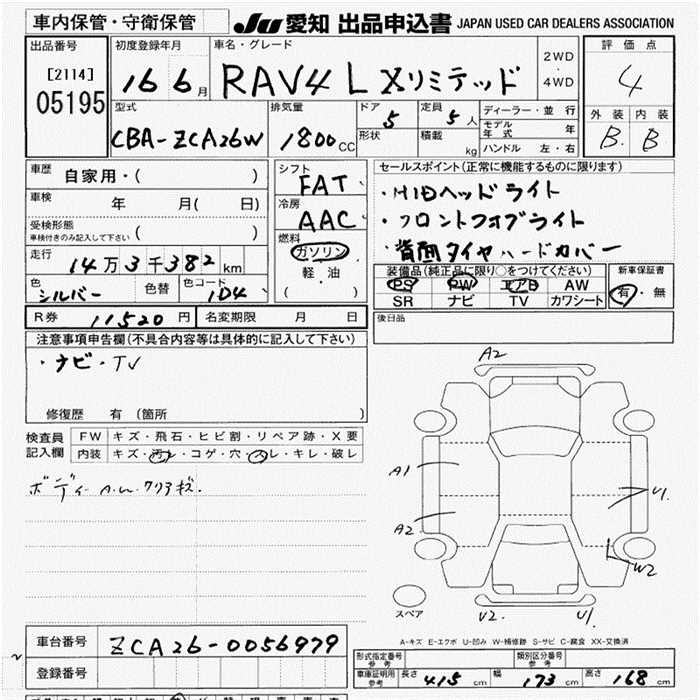 車内保管・守衛保管
JU 愛知 出品申込書 JAPAN USED CAR DEALERS ASSOCIATION
出品番号
[2114]
05195
初度登録年月
16 6月
車名・グレード
RAV4 L Xリミテッド
2WD
・
4WD
評価点
4
外装 内装
B B
型式
CBA-ZCA26W
排気量
1800 CC
ドア
5
形状
定員
5 人
積載
kg
ディーラー・並行
モデル年式 年
ハンドル 左・右
車歴 自家用・( )
車検 年 月( 日)
受検形態
車検付きのみ記入して下さい ( )
走行 14万3千382km
色 シルバー 色替 色コード 1D4
R券 11520円 名変期限 月 日
シフト
FAT
冷房
AAC
燃料
ガソリン
・
軽・油
( )
セールスポイント(正常に機能するものに限ります)
・HIDヘッドライト
・フロントフォグライト
・背面タイヤハードカバー
装備品(純正品に限り○をつけてください)
PS PW エアB AW
SR ナビ TV カワシート
新車保証書
有・無
後日品
注意事項申告欄(不具合内容等は具体的に記入して下さい)
・ナビ・TV
修復歴 有 (箇所 )
検査員記入欄
FW キズ・飛石・ヒビ割・リペア跡・X要
内装 キズ・汚レ・コゲ・穴・スレ・キレ・破レ
ボディー A.W.クリアキズ.
A2
A1
A2
U1
W2
V2
U1
スペア
A-キズ E-エクボ U-凹み W-補修跡 S-サビ C-腐食 XX-交換済
車台番号 ZCA26-0056979
登録番号
形式指定番号 参考
類別区分番号 参考
車庫証明用 参考 長さ 415 cm 幅 173 cm 高さ 168 cm